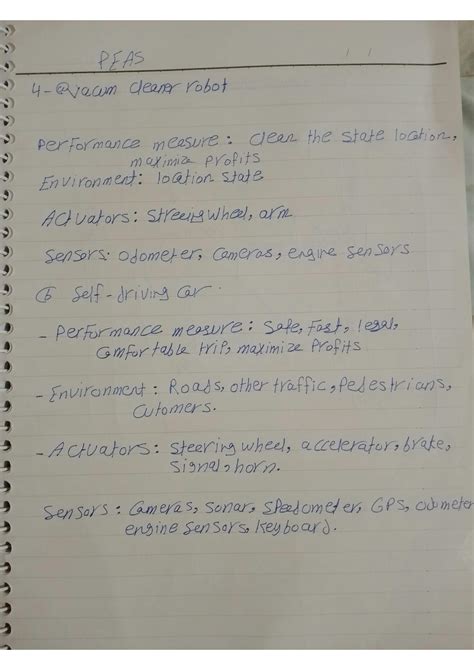 PEAS
4- @vacum cleaner robot
Performance measure: clean the state location,
maximize profits
Environment: location state
Actuators: Streeing wheel, arm
Sensors: odometer, Cameras, engine sensors
ⓑ Self-driving car.
- Performance measure: Safe, Fast, legal,
Comfortable trip, maximize Profits
- Environment: Roads, other traffic, Pedestrians,
Cutomers.
- Actuators: Steering wheel, accelerator, brake,
Signal, horn.
Sensors: Cameras, sonar, Speedometer, GPS, odometer
engine sensors, keyboard.